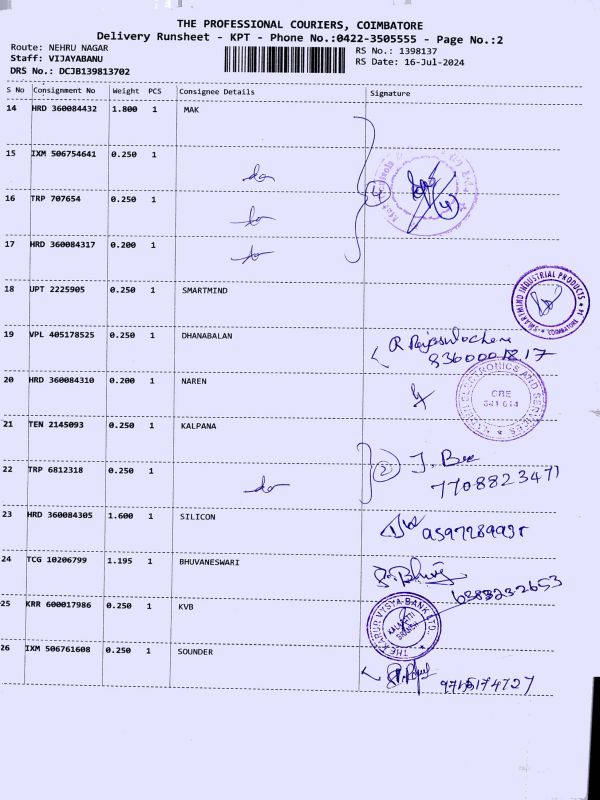 THE PROFESSIONAL COURIERS, COIMBATORE
Delivery Runsheet - KPT - Phone No.:0422-3505555 - Page No.:2
Route: NEHRU NAGAR
Staff: VIJAYABANU
DRS No.: DCJB139813702
RS No.: 1398137
RS Date: 16-Jul-2024
S No Consignment No Weight PCS Consignee Details Signature
14 HRD 360084432 1.800 1 MAK
15 IXM 506754641 0.250 1 do
16 TRP 707654 0.250 1 do
17 HRD 360084317 0.200 1 do
4
(4)
18 UPT 2225905 0.250 1 SMARTMIND
SMARTMIND INDUSTRIAL PRODUCTS
COIMBATORE
19 VPL 405178525 0.250 1 DHANABALAN
20 HRD 360084310 0.200 1 NAREN
ELECTRONICS AND SERVICES
CBE
641 014
21 TEN 2145093 0.250 1 KALPANA
22 TRP 6812318 0.250 1 do
2
7708823471
23 HRD 360084305 1.600 1 SILICON
24 TCG 10206799 1.195 1 BHUVANESWARI
25 KRR 600017986 0.250 1 KVB
THE KARUR VYSYA BANK LTD.
KALAPATTI
BRANCH
26 IXM 506761608 0.250 1 SOUNDER
9715174727